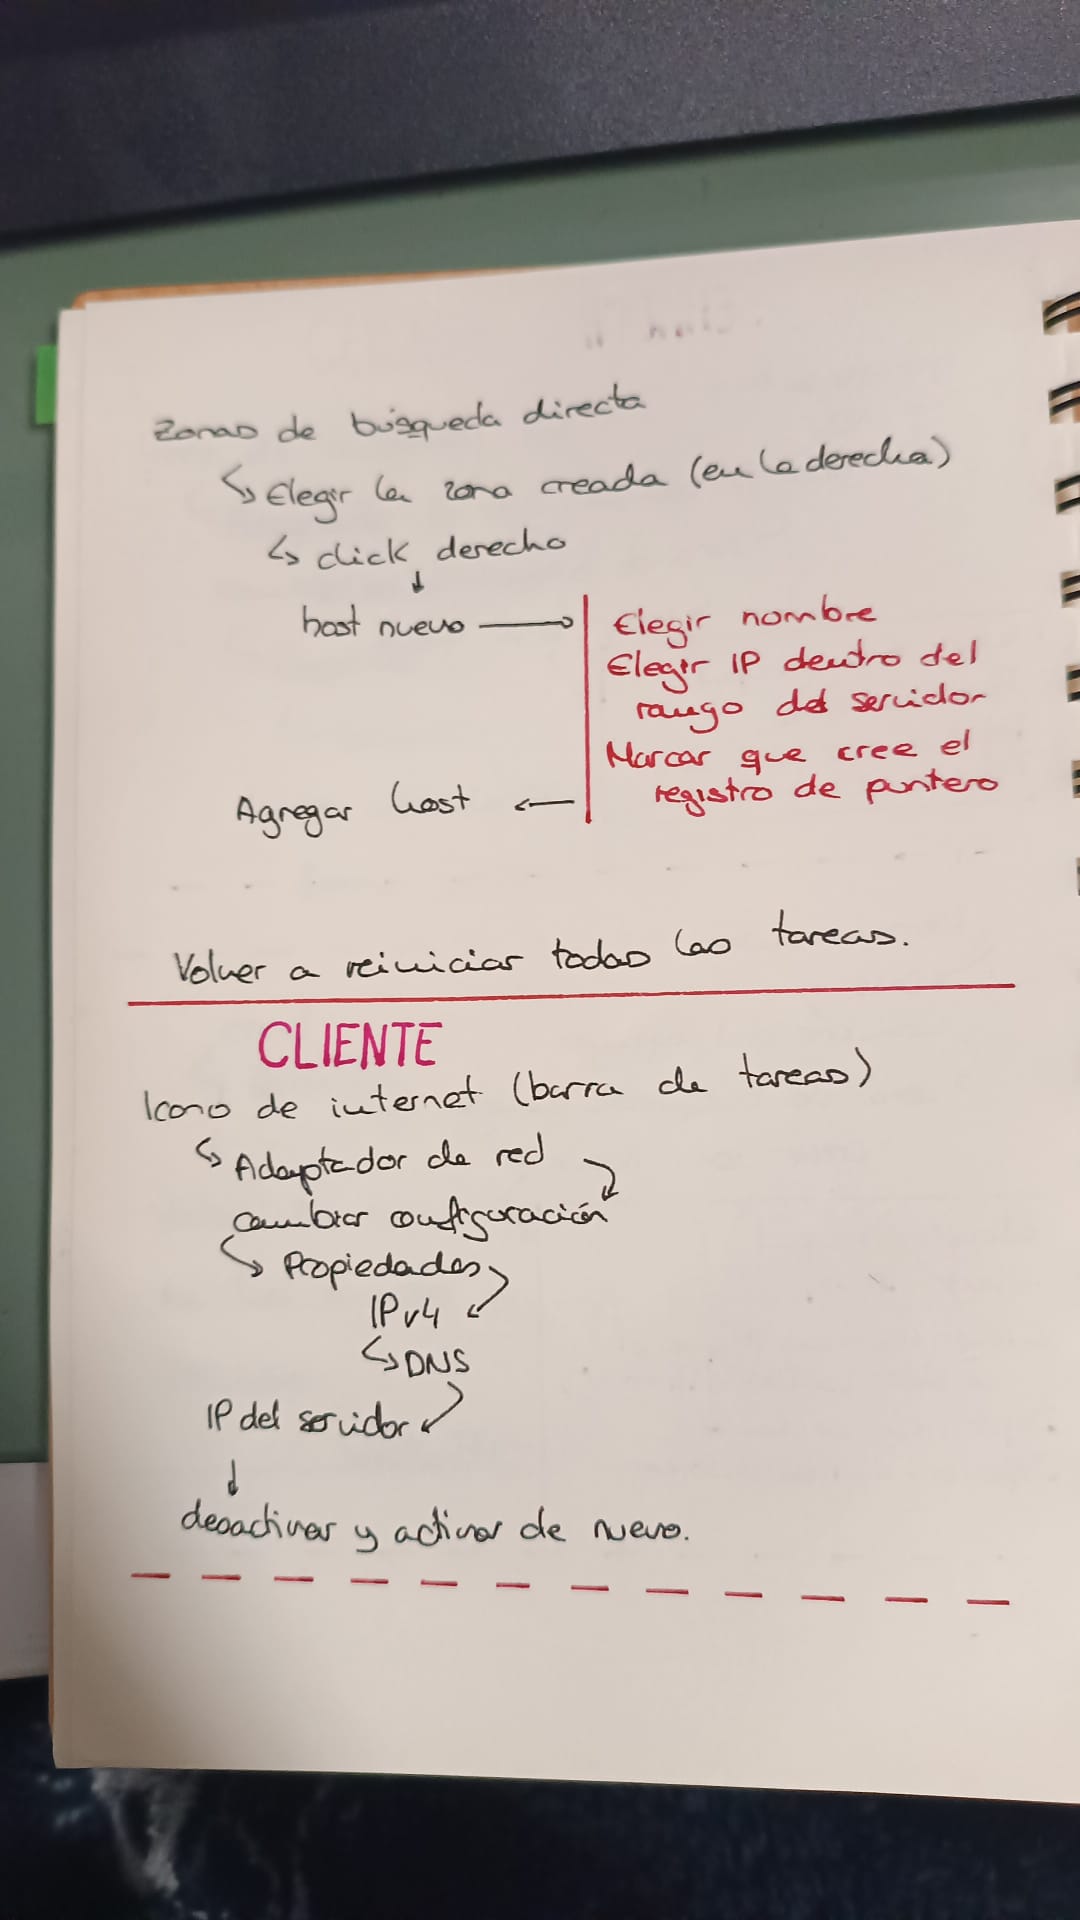 Zonas de búsqueda directa
↳ Elegir la zona creada (en la derecha)
↳ click derecho
↓
host nuevo → Elegir nombre
Elegir IP dentro del
rango del servidor
Marcar que cree el
registro de puntero
Agregar host ←
Volver a reiniciar todas las tareas.
CLIENTE
Icono de internet (barra de tareas)
↳ Adaptador de red
cambiar configuración
↳ Propiedades
IPv4
↳ DNS
IP del servidor
↓
desactivar y activar de nuevo.